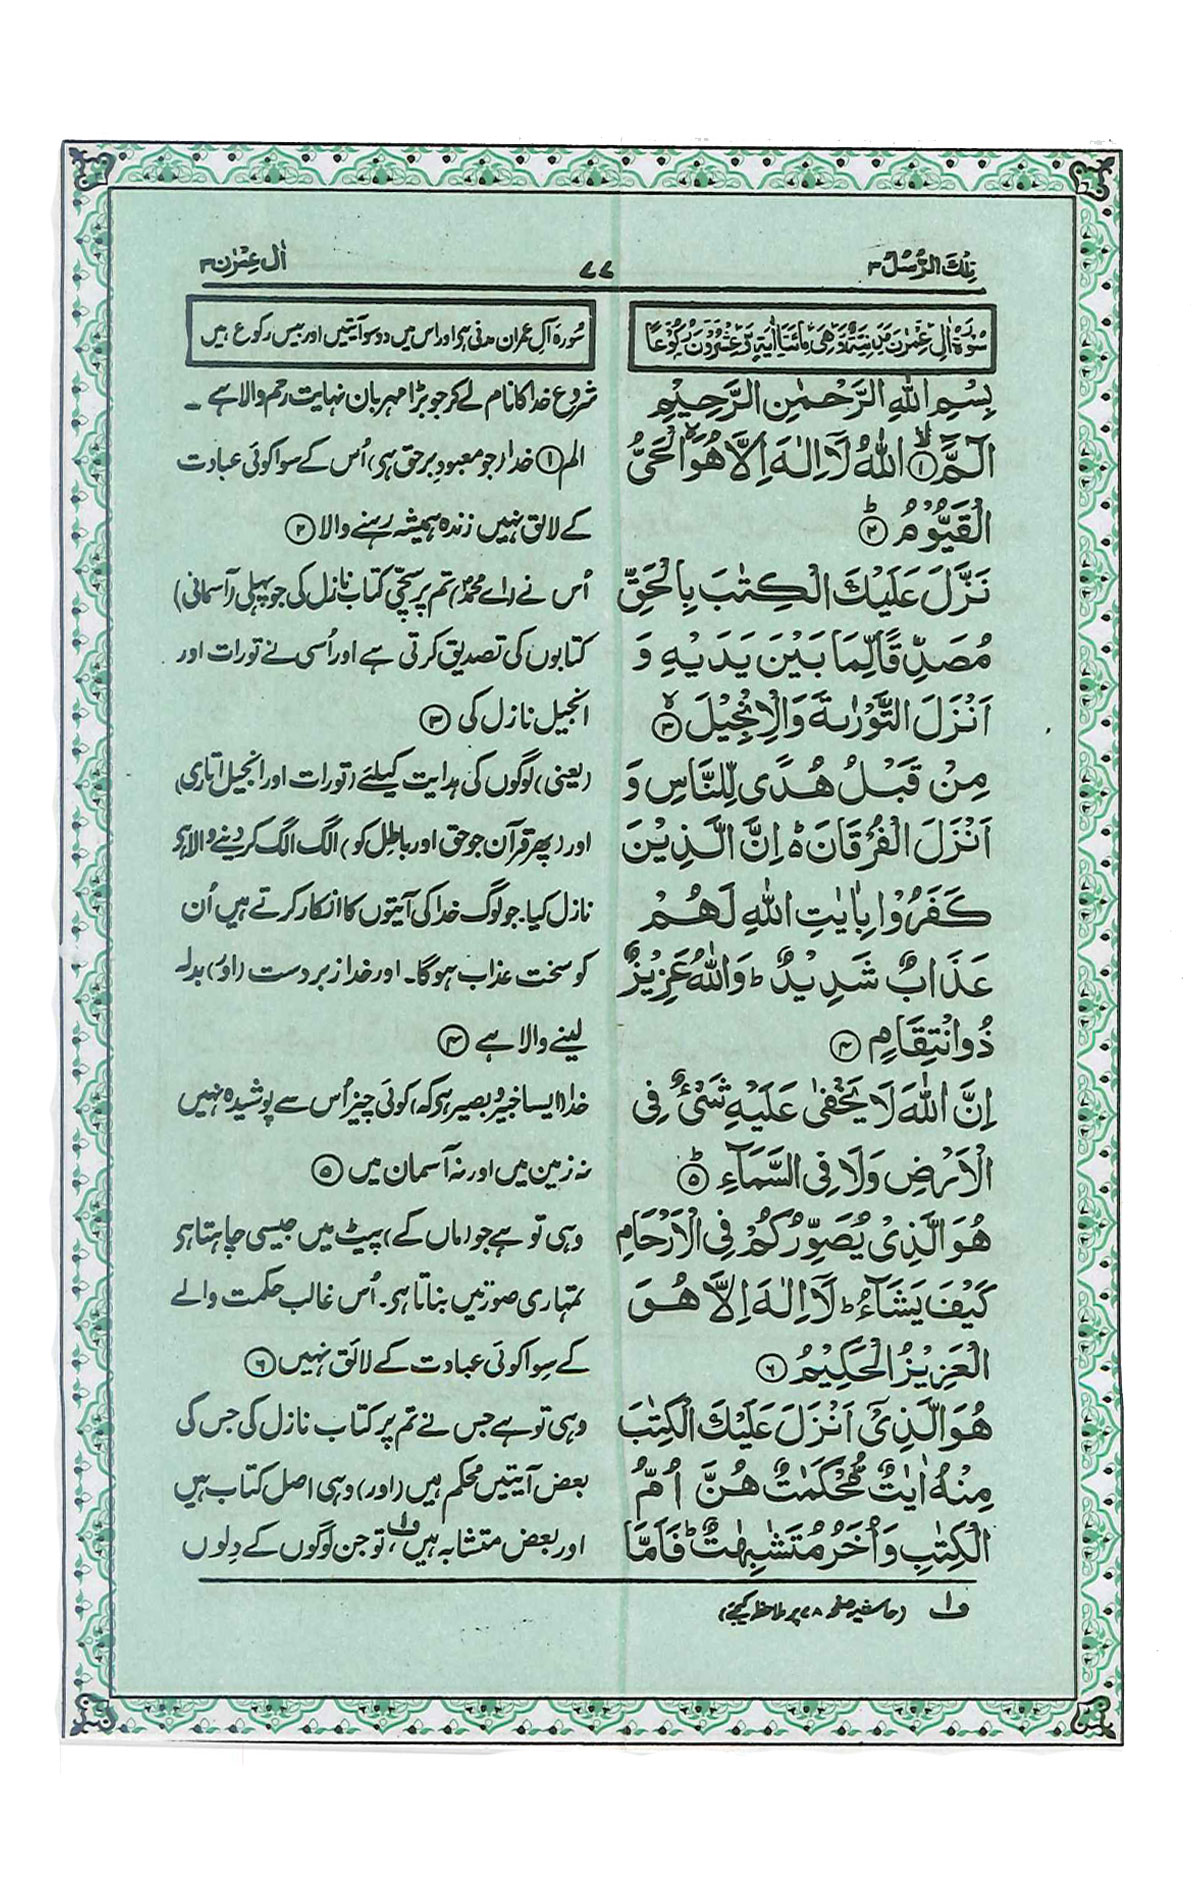 تِلْكَ الرُّسُلُ ٣
٧٧
اٰلِ عِمْرٰن ٣
سُوْرَةُ اٰلِ عِمْرٰنَ مَدَنِيَّةٌ وَّهِيَ مِائَتَا اٰيَةٍ وَّعِشْرُوْنَ رُكُوْعًا
بِسْمِ اللّٰهِ الرَّحْمٰنِ الرَّحِيْمِ
الٓمّٓ ۙ﴿١﴾ اللّٰهُ لَاۤ اِلٰهَ اِلَّا هُوَ ۙ الْحَيُّ
الْقَيُّوْمُ ؕ﴿٢﴾
نَزَّلَ عَلَيْكَ الْكِتٰبَ بِالْحَقِّ
مُصَدِّقًا لِّمَا بَيْنَ يَدَيْهِ وَ
اَنْزَلَ التَّوْرٰىةَ وَالْاِنْجِيْلَ ۙ﴿٣﴾
مِنْ قَبْلُ هُدًى لِّلنَّاسِ وَ
اَنْزَلَ الْفُرْقَانَ ؕ اِنَّ الَّذِيْنَ
كَفَرُوْا بِاٰيٰتِ اللّٰهِ لَهُمْ
عَذَابٌ شَدِيْدٌ ؕ وَاللّٰهُ عَزِيْزٌ
ذُوانْتِقَامٍ ﴿٤﴾
اِنَّ اللّٰهَ لَا يَخْفٰى عَلَيْهِ شَيْءٌ فِي
الْاَرْضِ وَلَا فِي السَّمَآءِ ؕ﴿٥﴾
هُوَ الَّذِيْ يُصَوِّرُكُمْ فِي الْاَرْحَامِ
كَيْفَ يَشَآءُ ؕ لَاۤ اِلٰهَ اِلَّا هُوَ
الْعَزِيْزُ الْحَكِيْمُ ﴿٦﴾
هُوَ الَّذِيْۤ اَنْزَلَ عَلَيْكَ الْكِتٰبَ
مِنْهُ اٰيٰتٌ مُّحْكَمٰتٌ هُنَّ اُمُّ
الْكِتٰبِ وَاُخَرُ مُتَشٰبِهٰتٌ ؕ فَاَمَّا
سُورۂ آلِ عمران مدنی ہی اور اس میں دو سو آیتیں اور بیس رکوع ہیں
شروع خدا کا نام لے کر جو بڑا مہربان نہایت رحم والا ہے ۔
الم ﴿۱﴾ خدا (جو معبودِ برحق ہی) اُس کے سوا کوئی عبادت
کے لائق نہیں زندہ ہمیشہ رہنے والا ﴿۲﴾
اُس نے (اے محمدؐ) تم پر سچّی کتاب نازل کی جو پہلی (آسمانی)
کتابوں کی تصدیق کرتی ہے اور اُسی نے تورات اور
انجیل نازل کی ﴿۳﴾
(یعنی) لوگوں کی ہدایت کیلئے (تورات اور انجیل اتاری)
اور (پھر قرآن جو حق اور باطل کو) الگ الگ کر دینے والا ہی
نازل کیا۔ جو لوگ خدا کی آیتوں کا انکار کرتے ہیں اُن
کو سخت عذاب ہوگا۔ اور خدا زبردست (اور) بدلہ
لینے والا ہے ﴿۴﴾
خدا (ایسا خبیر و بصیر ہی کہ) کوئی چیز اُس سے پوشیدہ نہیں
نہ زمین میں اور نہ آسمان میں ﴿۵﴾
وہی تو ہے جو (ماں کے) پیٹ میں جیسی چاہتا ہی
تمہاری صورتیں بناتا ہی۔ اُس غالب حکمت والے
کے سِوا کوئی عبادت کے لائق نہیں ﴿۶﴾
وہی تو ہے جس نے تم پر کتاب نازل کی جس کی
بعض آیتیں مُحکم ہیں (اور) وہی اصل کتاب ہیں
اور بعض متشابہ ہیں ف۱ تو جن لوگوں کے دِلوں
ف۱ (حاشیہ صفحہ ۷۸ پر ملاحظہ کیجئے)